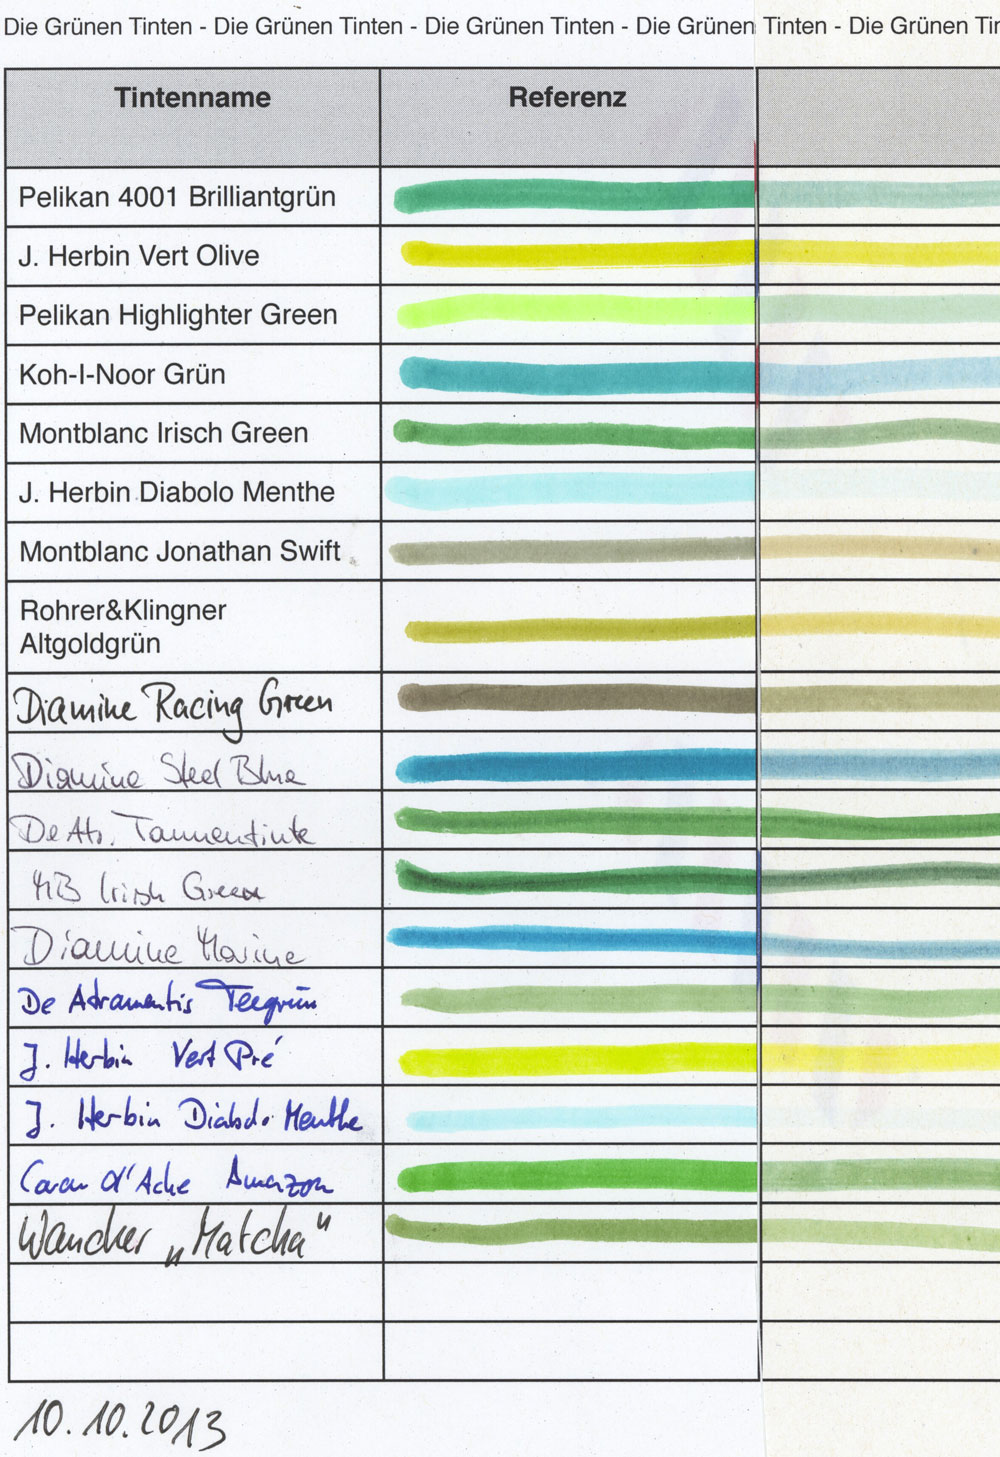 Die Grünen Tinten - Die Grünen Tinten - Die Grünen Tinten - Die Grünen Tinten - Die Grünen Tin
Tintenname Referenz
Pelikan 4001 Brilliantgrün
J. Herbin Vert Olive
Pelikan Highlighter Green
Koh-I-Noor Grün
Montblanc Irisch Green
J. Herbin Diabolo Menthe
Montblanc Jonathan Swift
Rohrer&Klingner
Altgoldgrün
Diamine Racing Green
Diamine Steel Blue
De Atr. Tannentinte
MB Irish Green
Diamine Marine
De Atramentis Teegrün
J. Herbin Vert Pré
J. Herbin Diabolo Menthe
Caran d'Ache Amazon
Wancher „Matcha“
10.10.2013